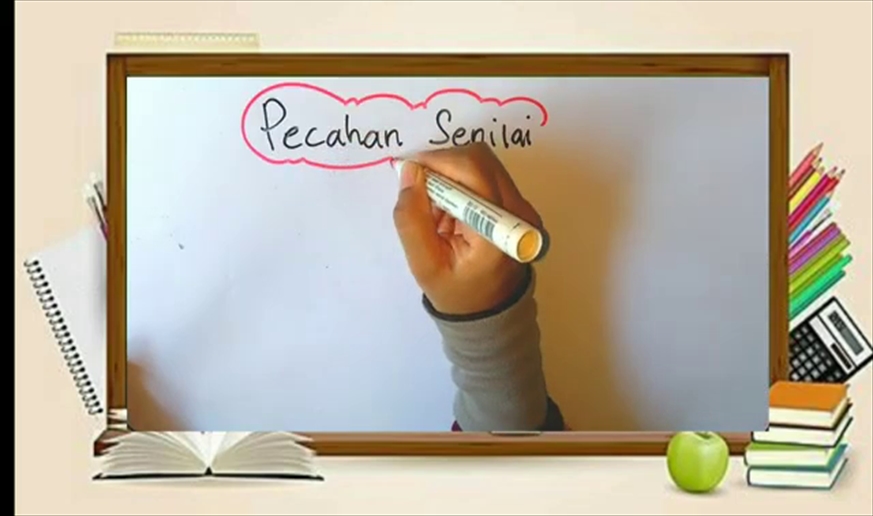 Pecahan Senilai